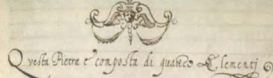 Questa Pietra e' composta di quatro Elementi